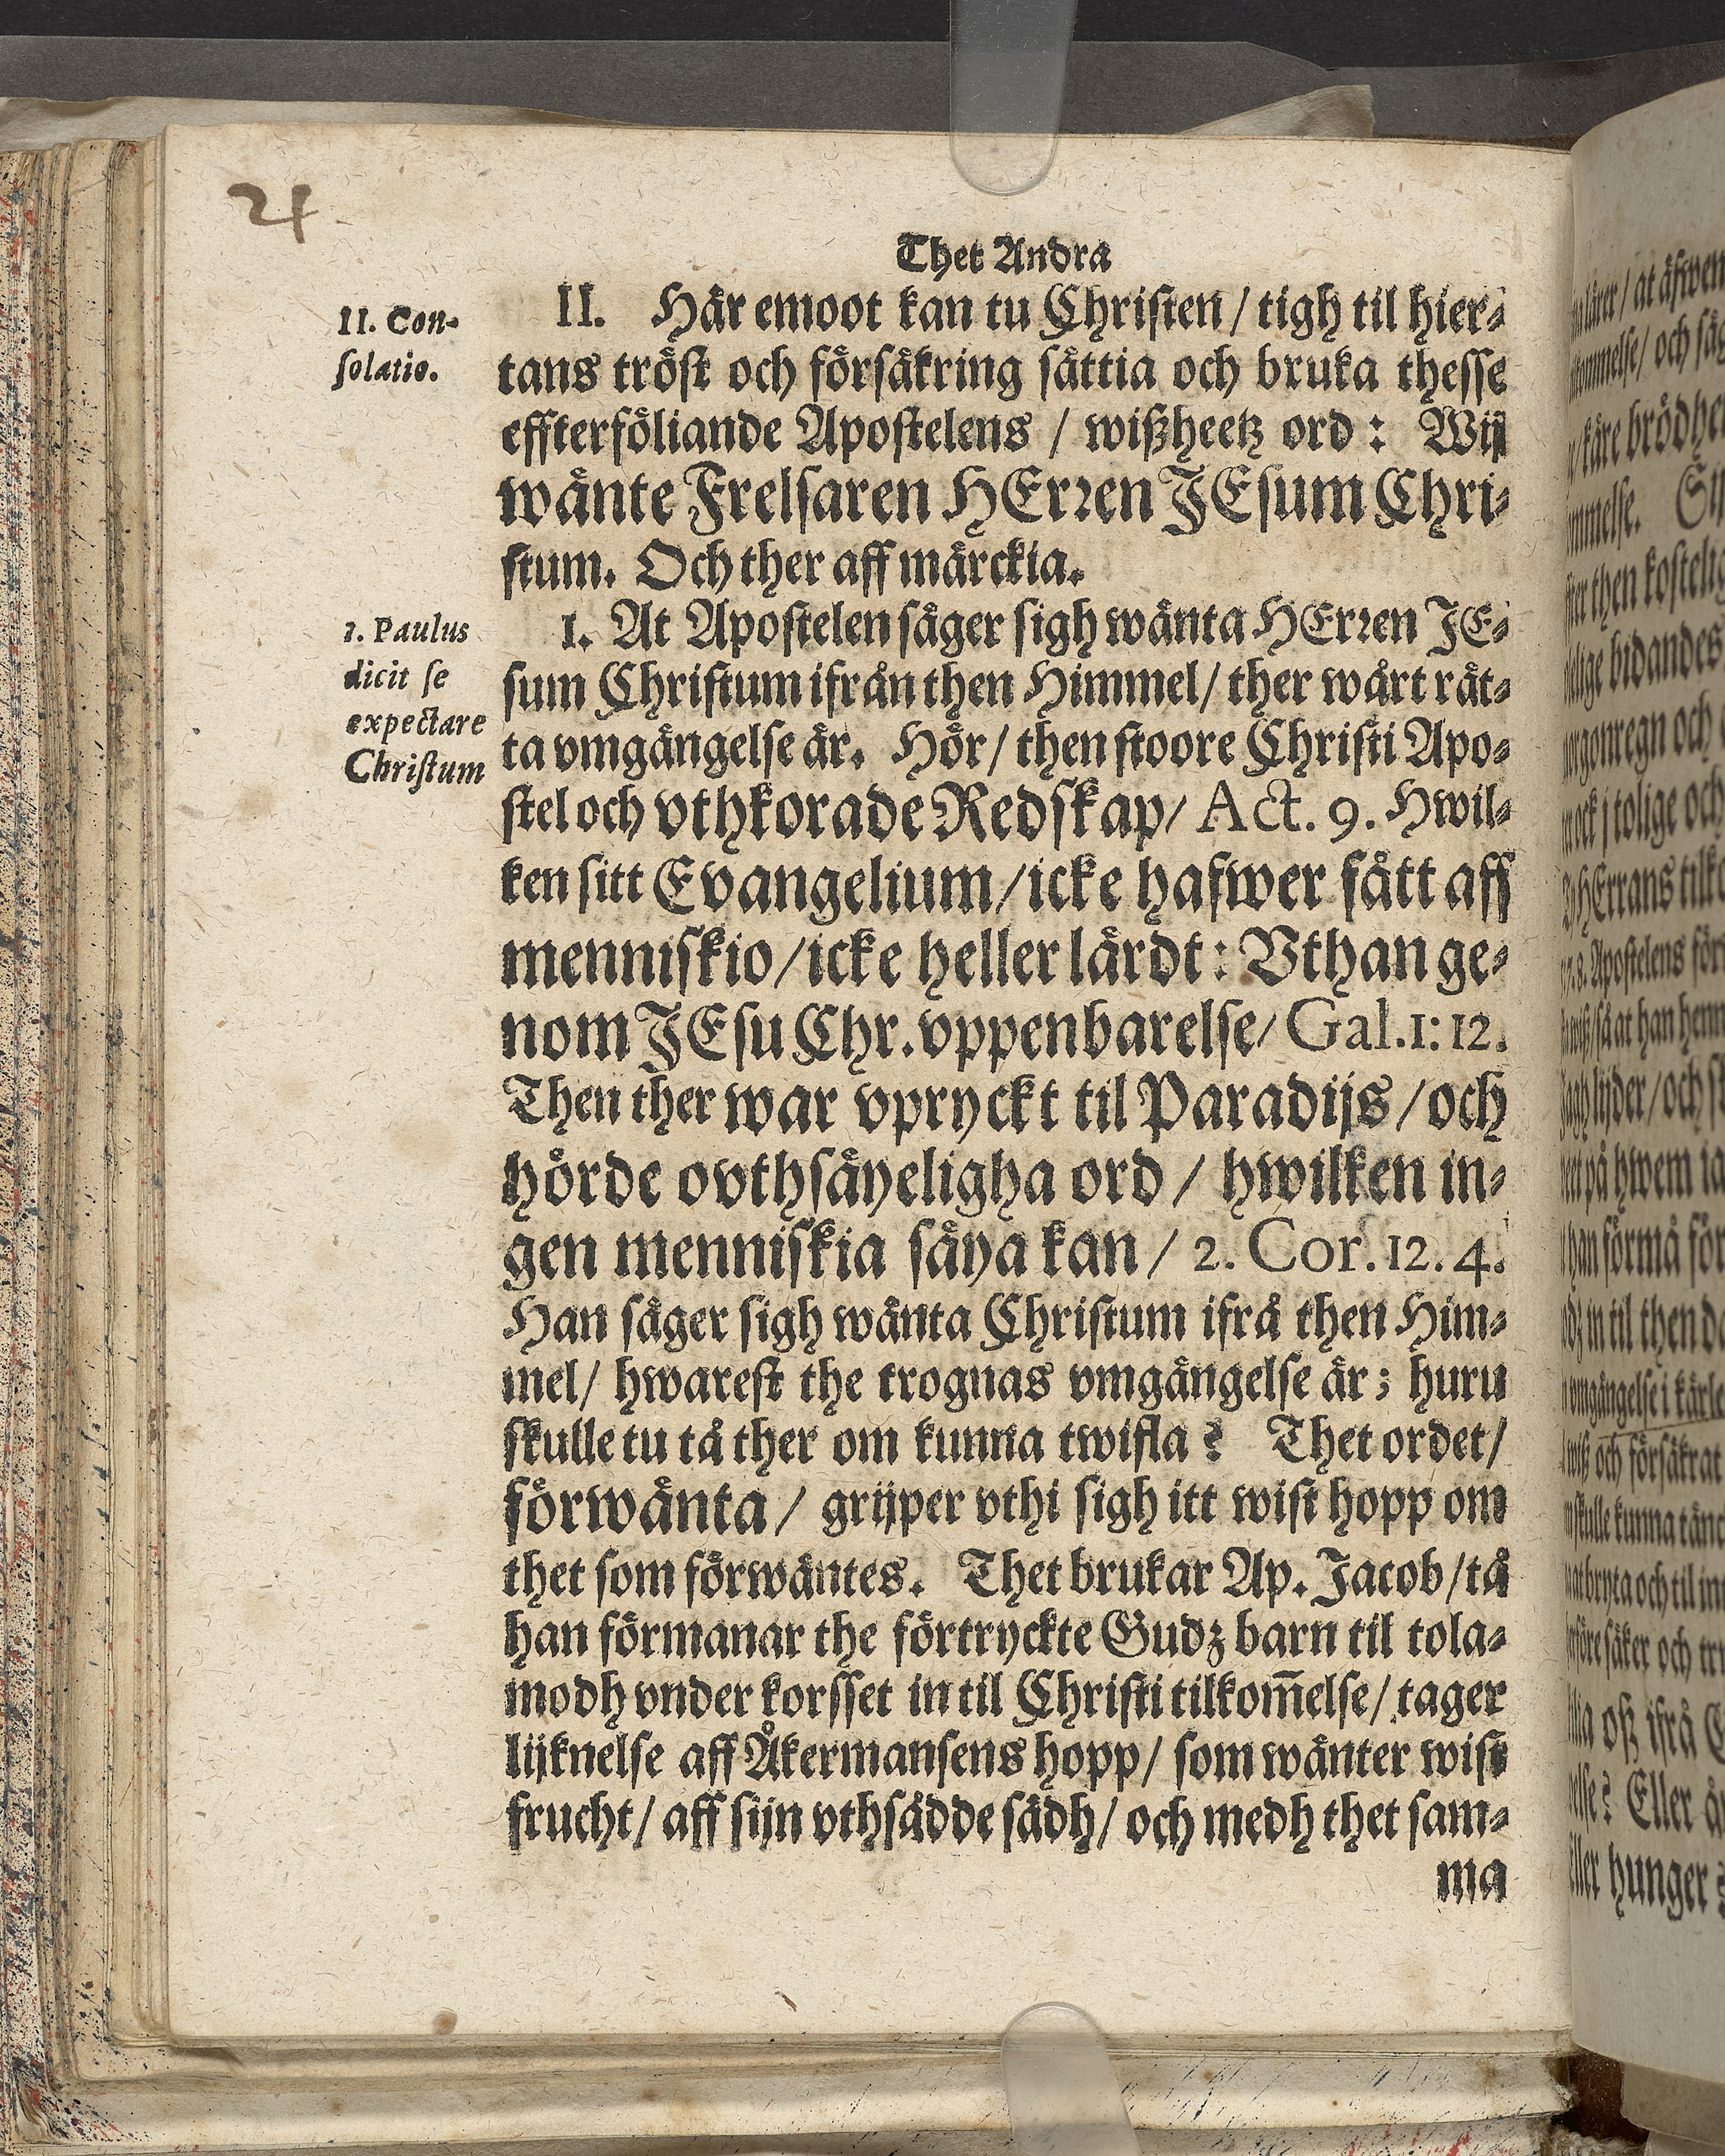 24
Thet Andra
II. Con-
solatio.
II. Här emoot kan tu Christen / tigh til hier-
tans tröst och försäkring sättia och bruka thesse
effterföliande Apostelens / wißheetz ord: Wij
wänte Frelsaren HErren JEsum Chri-
stum. Och ther aff märckia.
1. Paulus
dicit se
expectare
Christum
1. At Apostelen säger sigh wänta HErren JE-
sum Christum ifrån then Himmel / ther wårt rät-
ta vmgängelse är. Hör / then stoore Christi Apo-
stel och vthkorade Redskap / Act. 9. Hwil-
ken sitt Evangelium / icke hafwer fått aff
menniskio / icke heller lärdt: Vthan ge-
nom JEsu Chr. vppenbarelse / Gal. 1: 12.
Then ther war vpryckt til Paradijs / och
hörde ovthsäyeligha ord / hwilken in-
gen menniskia säya kan / 2. Cor. 12. 4.
Han säger sigh wänta Christum ifrå then Him-
mel / hwarest the trognas vmgängelse är; huru
skulle tu tå ther om kunna twifla? Thet ordet /
förwänta / grijper vthi sigh itt wist hopp om
thet som förwäntes. Thet brukar Ap. Jacob / tå
han förmanar the förtryckte Gudz barn til tola-
modh vnder korsset in til Christi tilkom̅else / tager
lijknelse aff Åkermansens hopp / som wänter wist
frucht / aff sijn vthsådde sädh / och medh thet sam-
ma